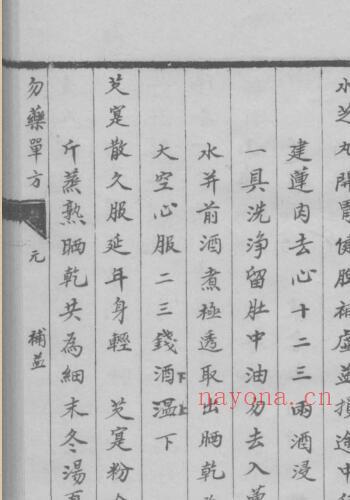 水芝丸開胃健脾補虛益損途中
建蓮肉去心十二三兩酒浸
一具洗淨留肚中油勿去入蓮
水并前酒煮極透取出晒乾
大空心服二三錢酒下溫上下
芡寔散久服延年身輕 芡寔粉
斤蒸熟晒乾共為細末冬湯
勿藥單方 元 補益
nayona.cn